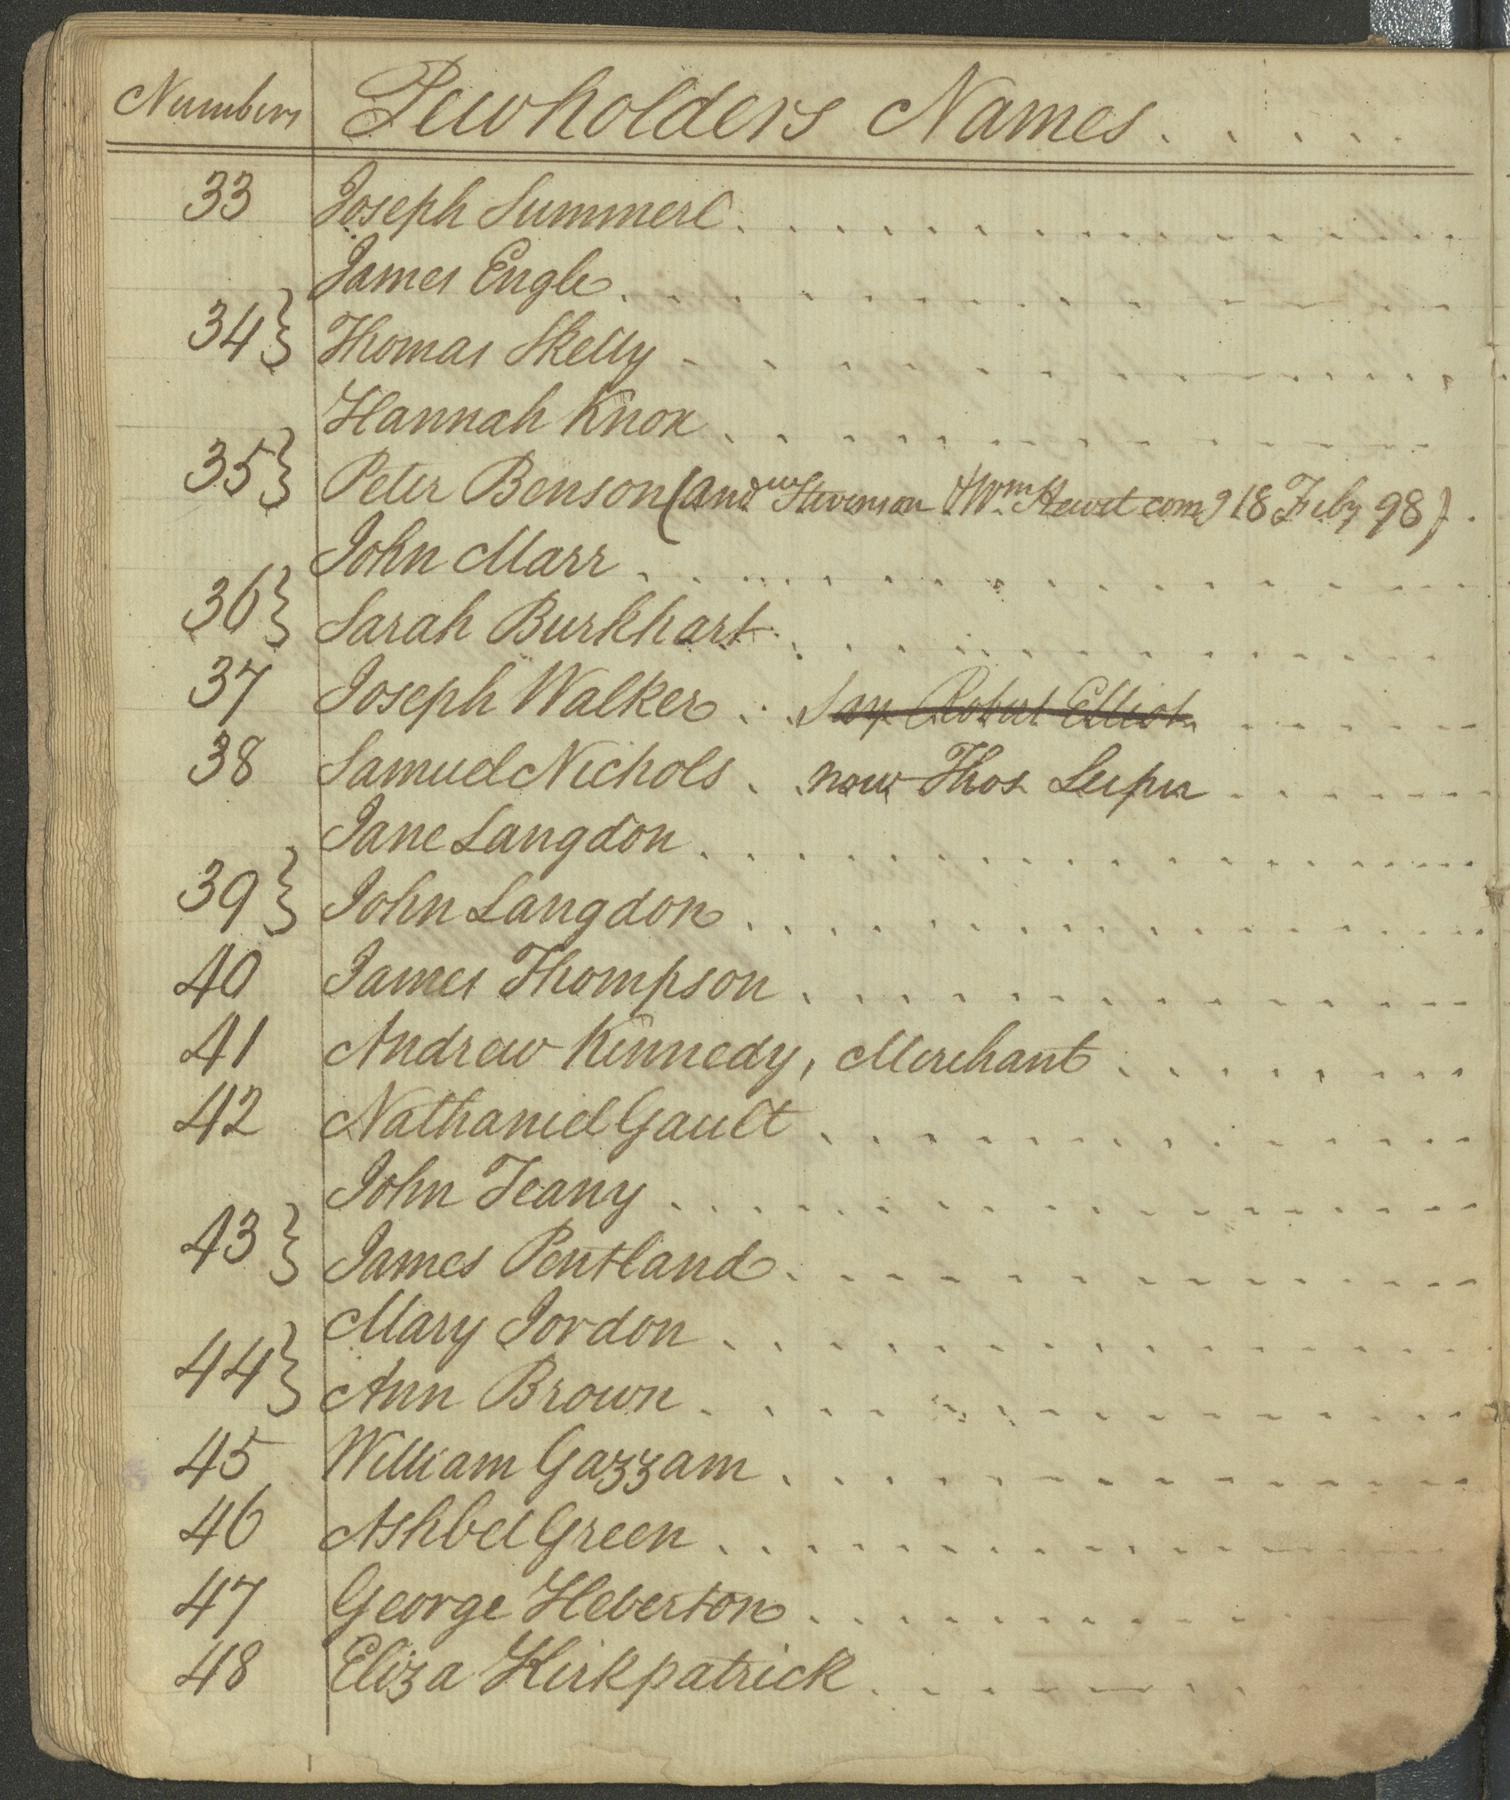 Numbers Pewholders Names
33 Joseph Summerl
James Engle
34 } Thomas Skelly
Hannah Knox
35 } Peter Benson (and Stevenson & Wm. Hewet com 18 Feby 98)
John Marr
36 } Sarah Burkhart
37 Joseph Walker Say Robert Elliot
38 Samuel Nichols now Thos Leiper
Jane Langdon
39 } John Langdon
40 James Thompson
41 Andrew Kennedy, Merchant
42 Nathaniel Gault
John Teany
43 } James Pentland
Mary Jordon
44 } Ann Brown
45 William Gazzam
46 Ashbel Green
47 George Heberton
48 Eliza Kirkpatrick